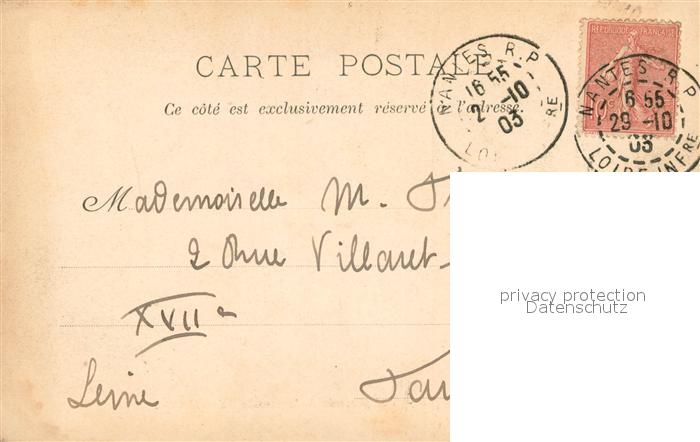 RÉPUBLIQUE FRANÇAISE
CARTE POSTALE
Ce côté est exclusivement réservé à l'adresse.
NANTES R.P
16 55
2 -10
03
LO RE
NANTES R.P
16 55
29 -10
03
LOIRE INFRE
Mademoiselle M.
2 Rue Villaret-
XVIIe
Seine
privacy protection
Datenschutz